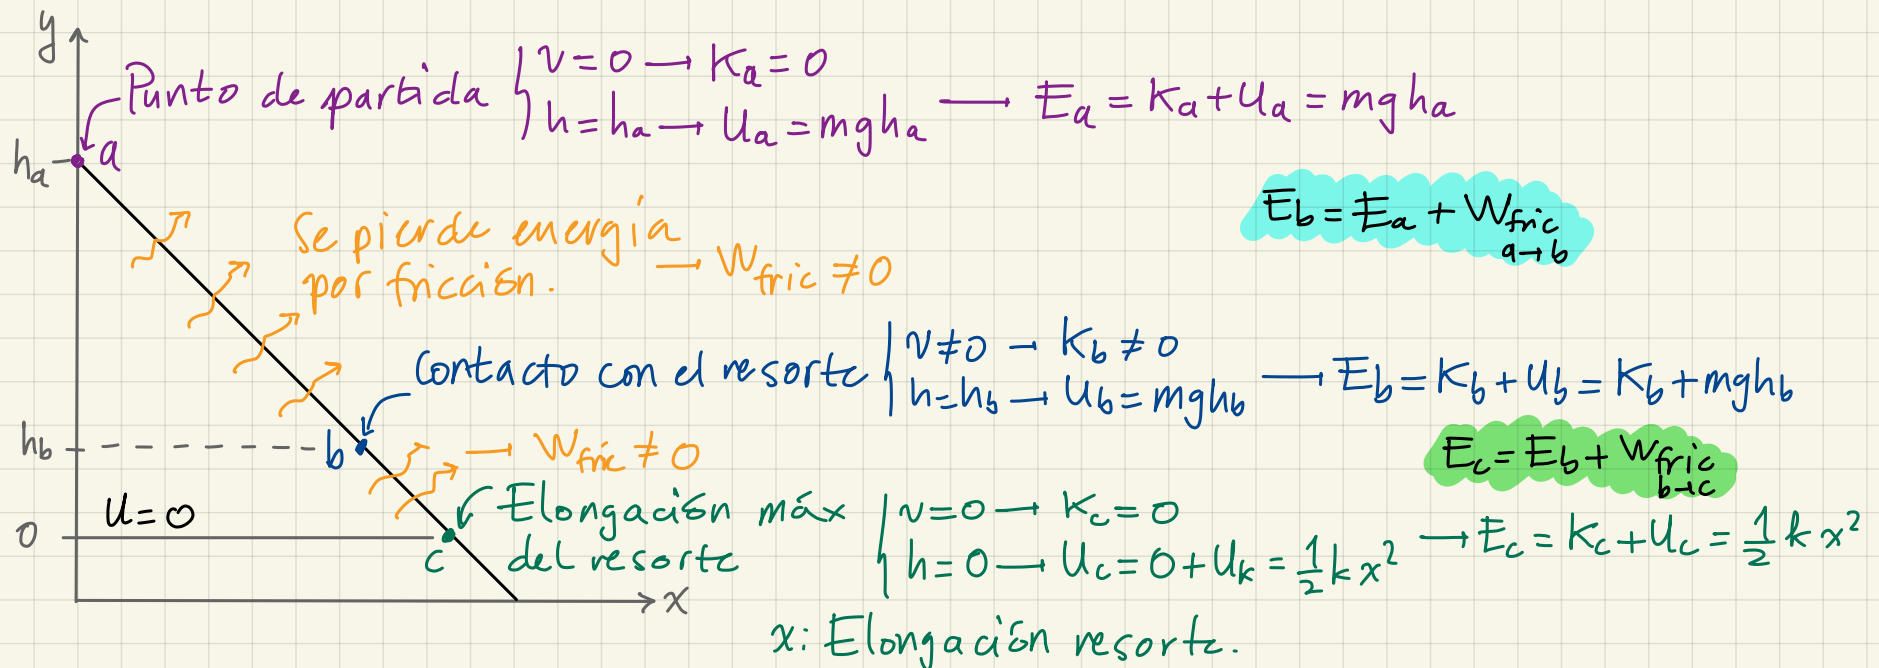 y
Punto de partida { v = 0 → Ka = 0
h = ha → Ua = mgha → Ea = Ka + Ua = mgha
ha
a
Eb = Ea + Wfric a→b
Se pierde energía
por fricción. → Wfric ≠ 0
Contacto con el resorte { v ≠ 0 → Kb ≠ 0
h = hb → Ub = mghb → Eb = Kb + Ub = Kb + mghb
hb
b
→ Wfric ≠ 0
Ec = Eb + Wfric b→c
U = 0
Elongación máx
del resorte
{ v = 0 → Kc = 0
h = 0 → Uc = 0 + Uk = 1/2 k x² → Ec = Kc + Uc = 1/2 k x²
0
c
x
x: Elongación resorte.